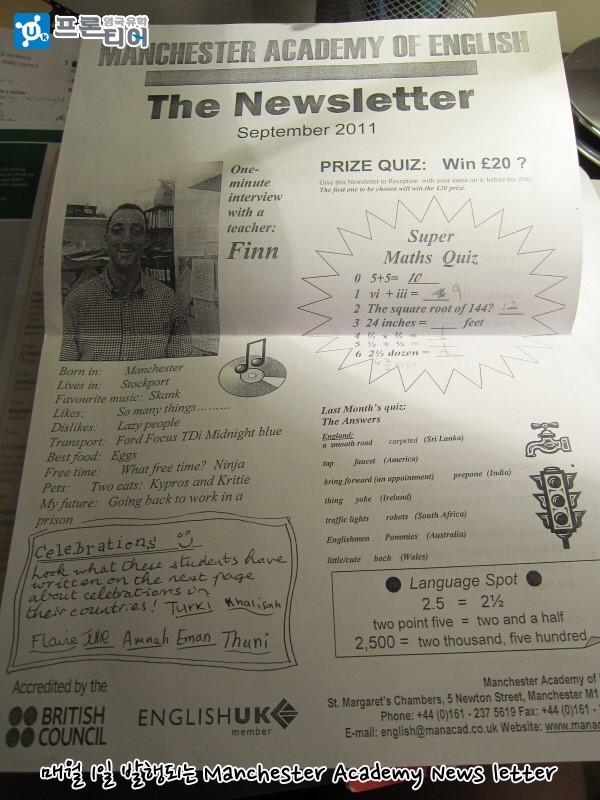 영국유학
프론티어
MANCHESTER ACADEMY OF ENGLISH
The Newsletter
September 2011
One-
minute
interview
with a
teacher:
Finn
Born in: Manchester
Lives in: Stockport
Favourite music: Skank
Likes: So many things………
Dislikes: Lazy people
Transport: Ford Focus TDi Midnight blue
Best food: Eggs
Free time: What free time? Ninja
Pets: Two cats: Kypros and Kritie
My future: Going back to work in a
prison
Celebrations
Look what these students have
written on the next page
about celebrations in
their countries! Turki Khalifah
Amnah Eman Thuni
Accredited by the
BRITISH
COUNCIL
ENGLISHUK
member
PRIZE QUIZ: Win £20 ?
Give this Newsletter to Reception with your name on it, before the 20th.
The first one to be chosen will win the £20 prize.
Super
Maths Quiz
0 5+5= 10
1 vi + iii = 9
2 The square root of 144? 12
3 24 inches = feet
4 ½ x ½ =
5 ½ + ½ =
6 2½ dozen =
Last Month's quiz:
The Answers
England:
a smooth road carpeted (Sri Lanka)
tap faucet (America)
bring forward (an appointment) prepone (India)
thing yoke (Ireland)
traffic lights robots (South Africa)
Englishmen Pommies (Australia)
little/cute bach (Wales)
Language Spot
2.5 = 2½
two point five = two and a half
2,500 = two thousand, five hundred
Manchester Academy of
St. Margaret's Chambers, 5 Newton Street, Manchester M1
Phone: +44 (0)161 - 237 5619 Fax: +44 (0)161 -
E-mail: english@manacad.co.uk Website: www.mana
매월 1일 발행되는 Manchester Academy News letter